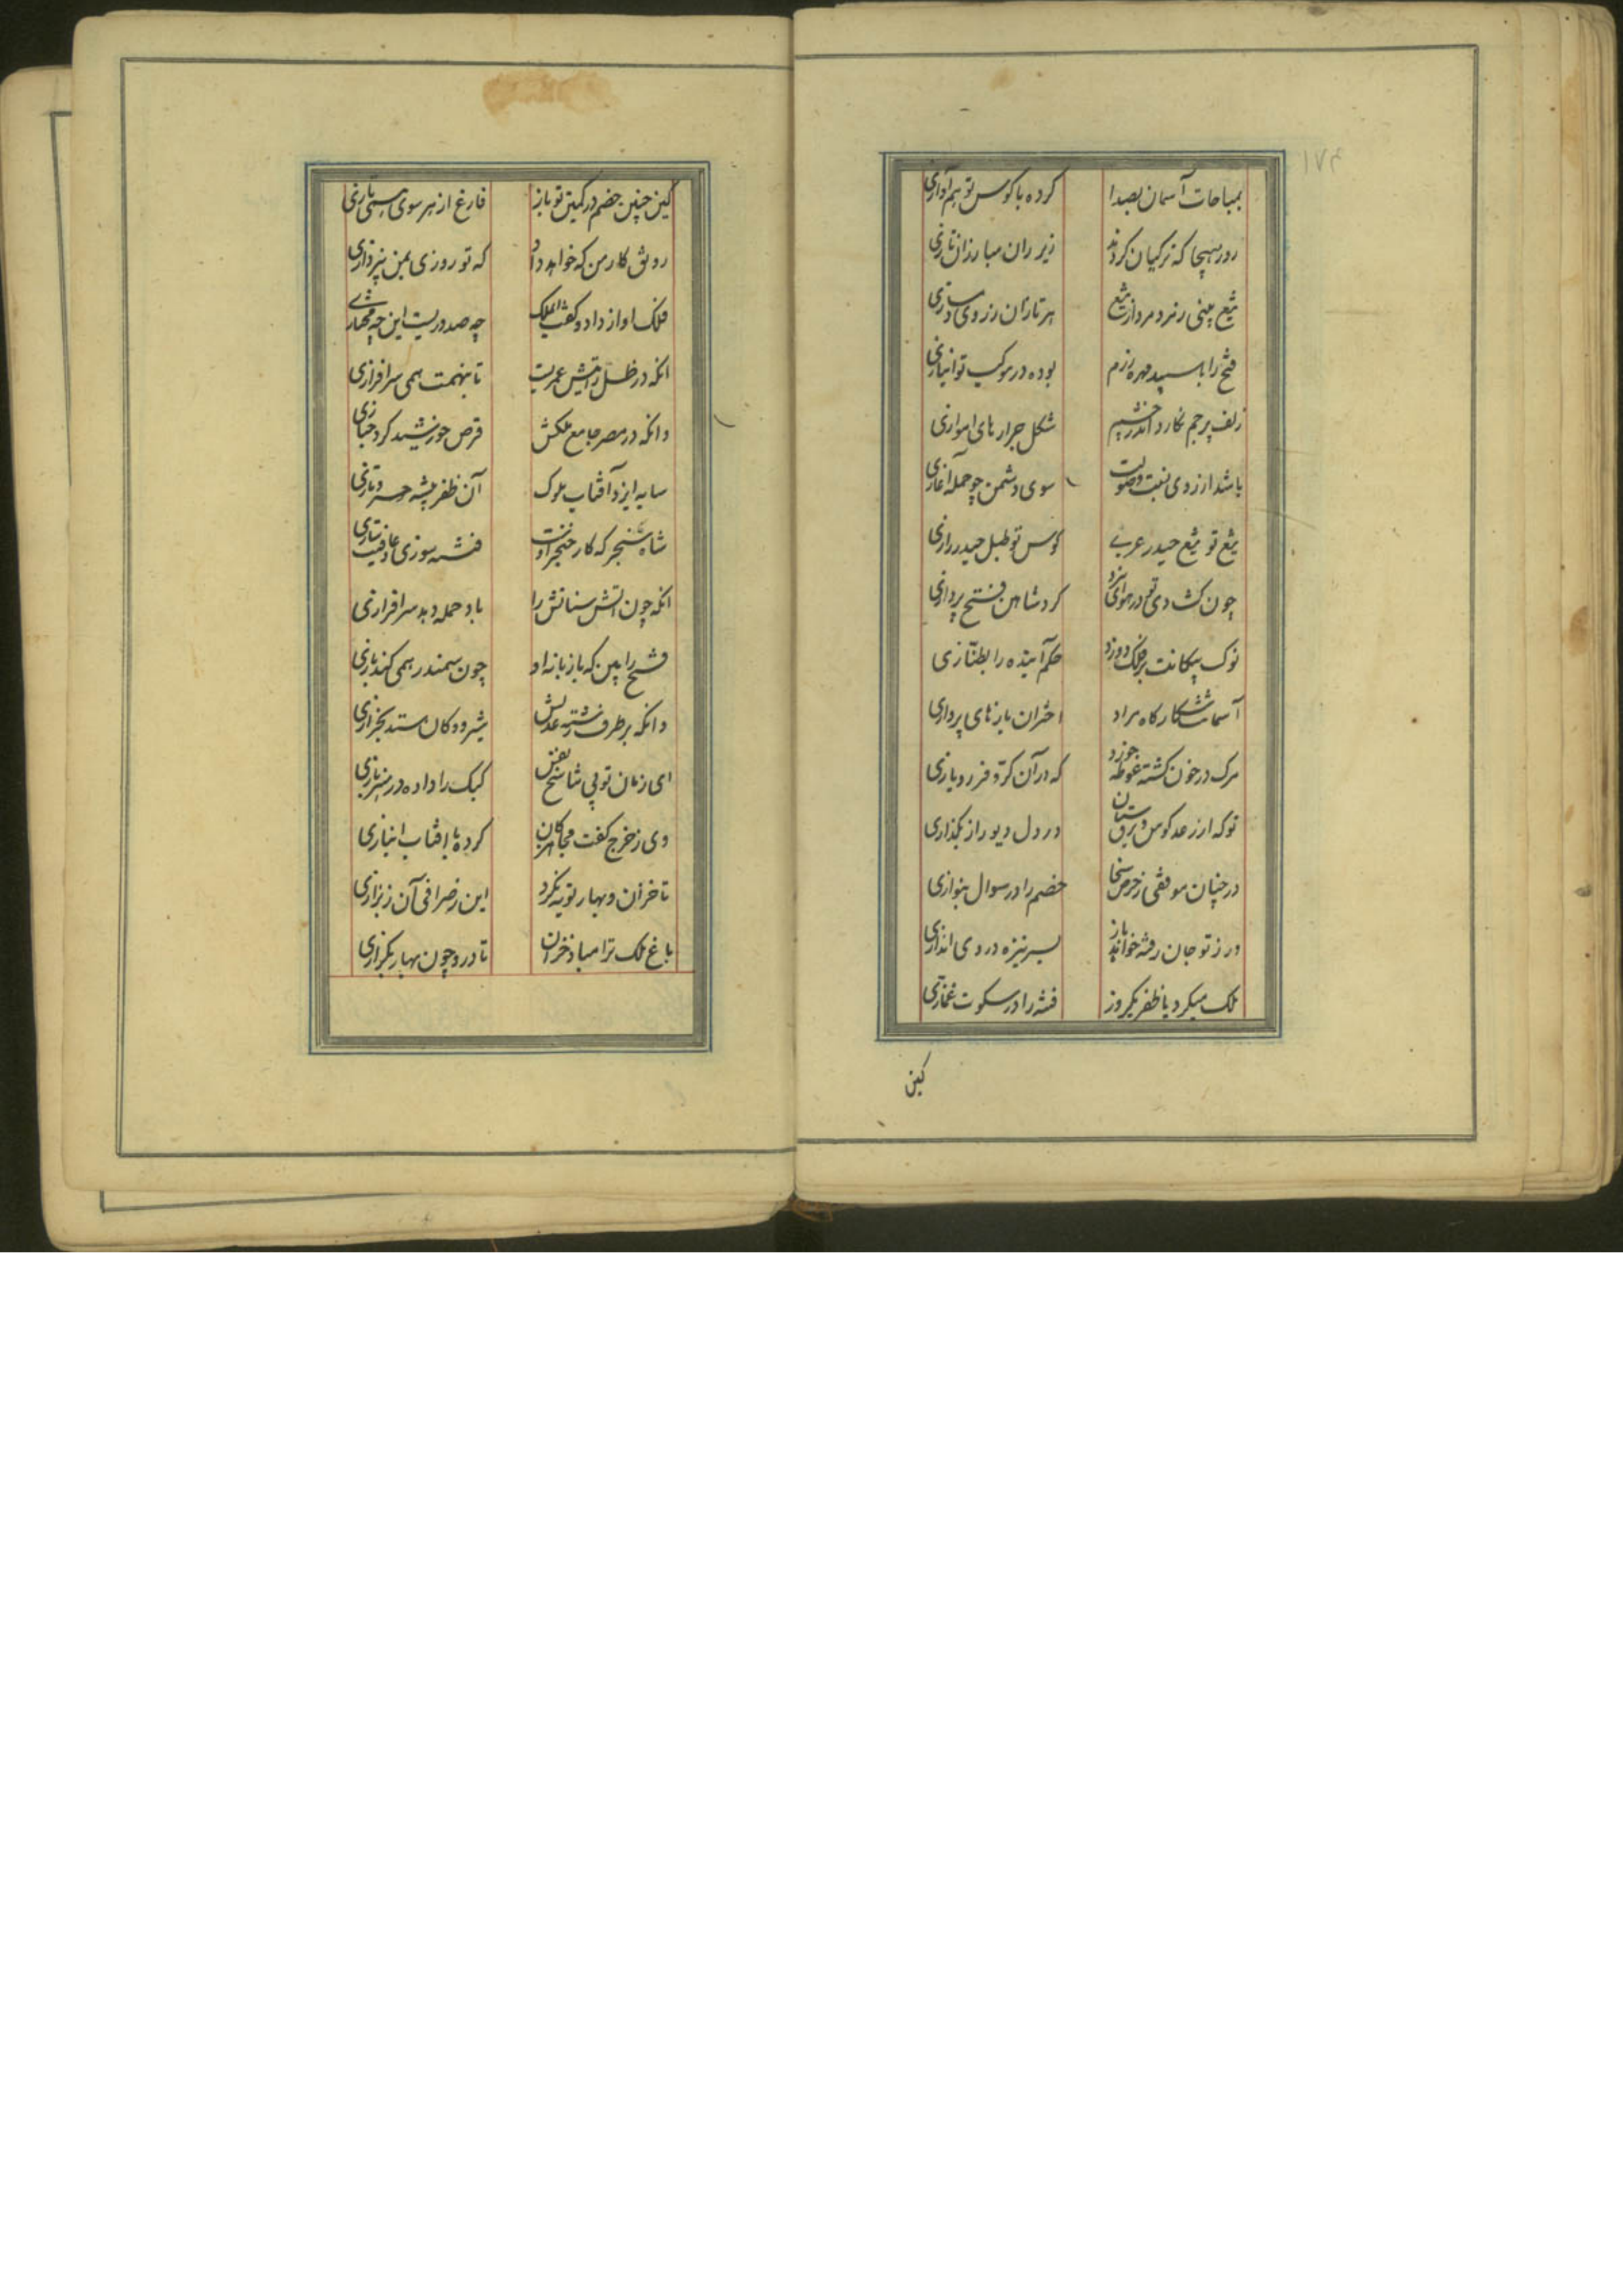 بمباهات آسمان بصدا
کرده با کوس تو هم آوازی
روز هیجا که ترکیان کردند
زیر ران مبارزان تازی
تیغ بینی ز مرد و مرد از تیغ
هر تازان ز روی دمسازی
فتح را با سپید مهره رزم
بوده در موکب تو انبازی
زلف پرچم نگارد اندر چشم
شکل جراره‌های اهوازی
باشد از روی نسبت و صولت
سوی دشمن چو حمله آغازی
تیغ تو تیغ حیدر عربی
کوس تو طبل حیدر رازی
چون کشادی تیر در هوای نبرد
کرد شاهین فتح پردازی
نوک پیکانت بر فلک دوزد
حکم آینده را بطنّازی
آسمانت شکارگاه مراد
اختران بازهای پردازی
مرگ در خون کشته غوطه خورد
که در آن کرّ و فر رو یازی
تو که از رعد کوس و برق سنان
در دل دیو راز بگذاری
در چنان موقفی ز حرص سخا
خصم را در سوال بنوازی
ور ز تو جان رفته خواهد باز
بسر نیزه در وی اندازی
ملک میکرد با ظفر یکروز
فتنه را در سکوت غمّازی
کین
کین چنین خصم در کمین تو باز
فارغ از هر سوی بستی بازی
رونق کار من که خواهد داد
که تو روزی بمن نپردازی
فلک آواز داد و گفت ای ملک
چه حدیثست این چه
انکه در ظل رایتش عمریست
تا بنهمت همی سرافرازی
وانکه در مصر جامع ملکش
قرص خورشید کرد خبازی
سایه ایزد آفتاب ملوک
آن ظفر پیشه خسرو غازی
شاه سنجر که کار خنجر اوست
فتنه سوزی و عافیت سازی
انکه چون آتش سنانش را
باد حمله دهد سرافرازی
فتح را بین که با زبانه او
چون سمندر همی کند بازی
وانکه بر طرف رشته عدلش
شیر دوکان ستد بخرازی
ای زمان تو بی تناسخ نفس
کبک را داده در هنر بازی
وی ز خرج کفت مجاهز کان
کرده با آفتاب انبازی
تا خزان و بهار توبه نکرد
این ز صرافی آن ز بزازی
باغ ملک ترا مباد خزان
تا درو چون بهار بگرازی